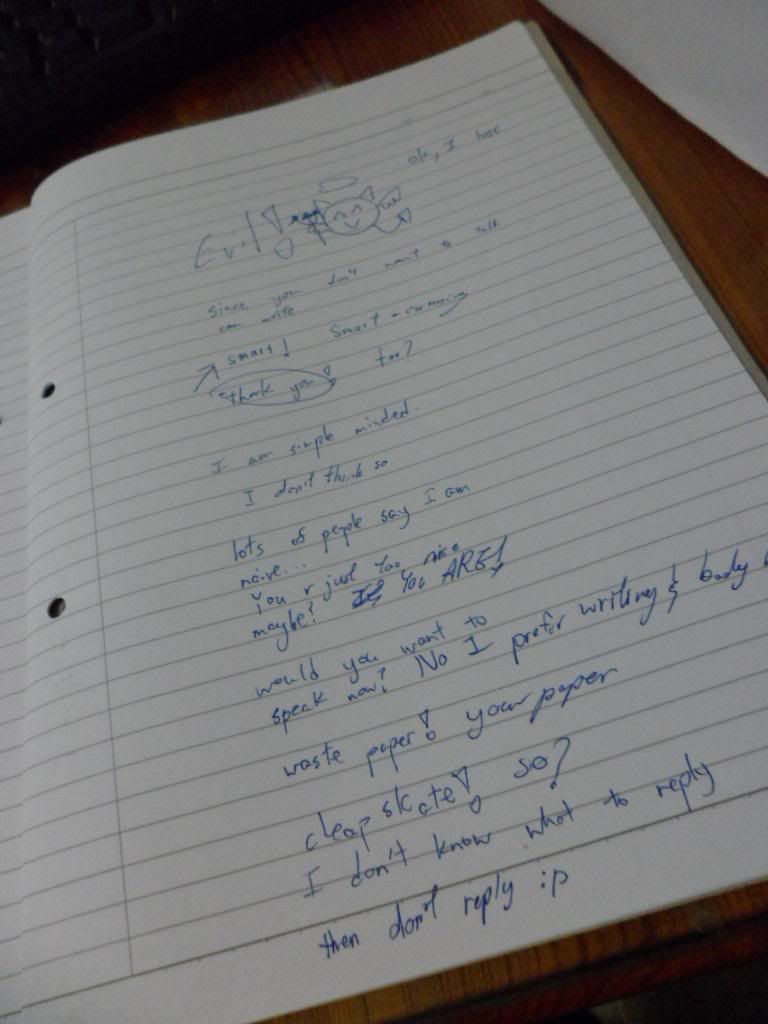 ok, I lose
Evil!
since you don't want to talk
can write.
smart! Smart - cunning
thank you! for?
I am simple minded.
I don't think so
lots of people say I am
naive...
You r just too nice
maybe? You ARE!
would you want to
speak now? No I prefer writing & body
waste paper! your paper
cheapskate! so?
I don't know what to reply
then don't reply :p